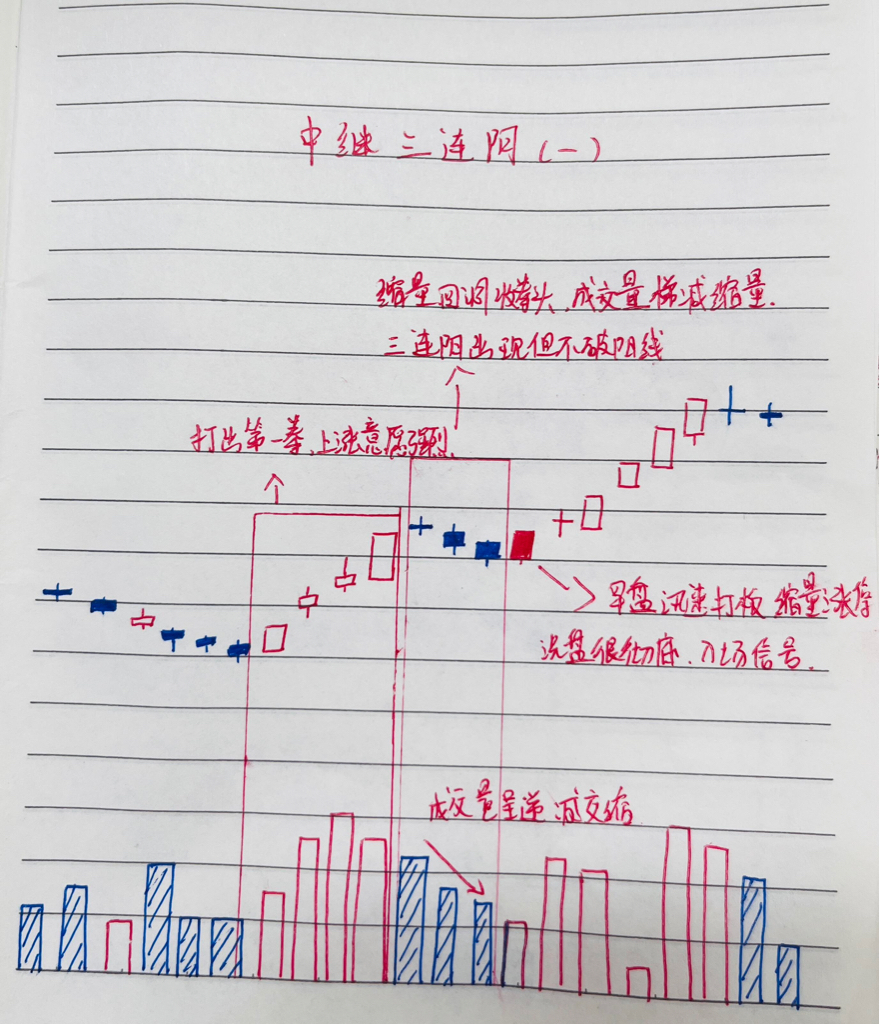 中继三连阳(一)
缩量回调收拳头,成交量梯减缩量.
三连阳出现但不破阳线
打出第一拳、上涨意愿强烈.
早盘迅速打板 缩量涨停
洗盘很彻底、入场信号.
成交量呈递减交缩